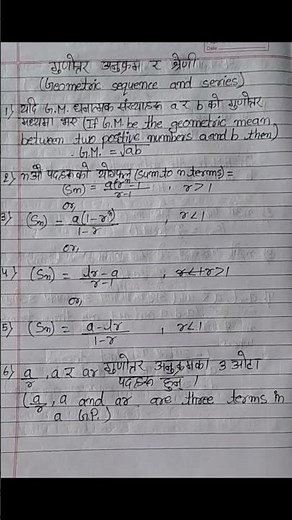 गुणोत्तर अनुक्रम र श्रेणी
(Geometric sequence and series)
1) यदि G.M. धनात्मक संख्याहरू a र b को गुणोत्तर
मध्यमा भए (If G.M be the geometric mean
between two positive numbers a and b then)
G.M. = √ab
2) n औं पदहरूको योगफल (sum to n terms) =
(Sn) = a(rⁿ-1)/r-1 , r>1
or,
3) (Sn) = a(1-rⁿ)/1-r , r<1
or,
4) (Sn) = lr-a/r-1 , r>1
or
5) (Sn) = a-lr/1-r , r<1
6) a/r, a र ar गुणोत्तर अनुक्रमका 3 ओटा
पदहरू हुन् ।
(a/r, a and ar are three terms in
a G.P.)